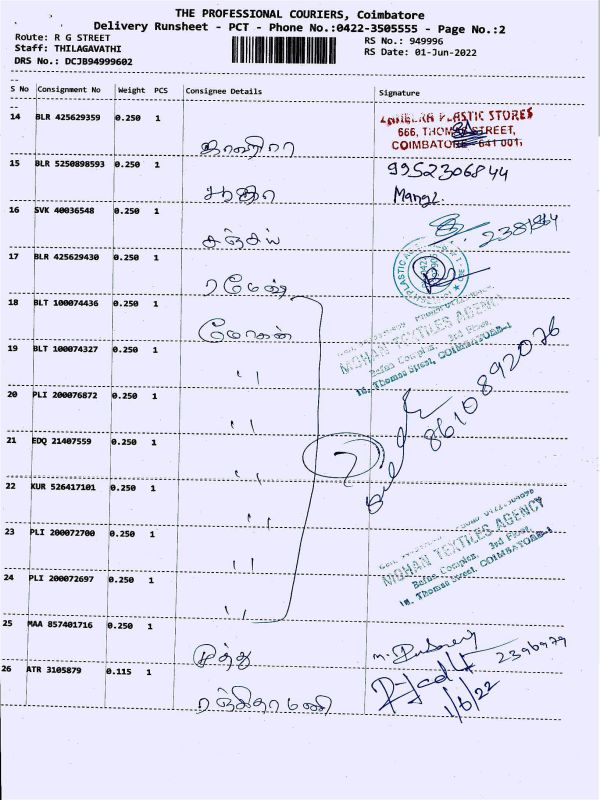 THE PROFESSIONAL COURIERS, Coimbatore
Delivery Runsheet - PCT - Phone No.:0422-3505555 - Page No.:2
Route: R G STREET
RS No.: 949996
Staff: THILAGAVATHI
RS Date: 01-Jun-2022
DRS No.: DCJB94999602
S No Consignment No Weight PCS Consignee Details Signature
14 BLR 425629359 0.250 1
PLASTIC STORES
666, THOMAS STREET,
COIMBATORE - 641 001.
15 BLR 5250898593 0.250 1 9952306844
16 SVK 40036548 0.250 1 சஞ்சய்
17 BLR 425629430 0.250 1 ரமேஷ்
18 BLT 100074436 0.250 1 மோகன்
MOHAN TEXTILES AGENCY
Bafna Complex, 3rd Floor,
16, Thomas Street, COIMBATORE-1
19 BLT 100074327 0.250 1 ״
8610892076
20 PLI 200076872 0.250 1 ״
21 EDQ 21407559 0.250 1 ״
7
22 KUR 526417101 0.250 1 ״
23 PLI 200072700 0.250 1 ״
MOHAN TEXTILES AGENCY
Bafna Complex, 3rd Floor,
16, Thomas Street, COIMBATORE-1
24 PLI 200072697 0.250 1 ״
25 MAA 857401716 0.250 1 முத்து
2396979
26 ATR 3105879 0.115 1 ரஞ்சிதாமணி
1/6/22